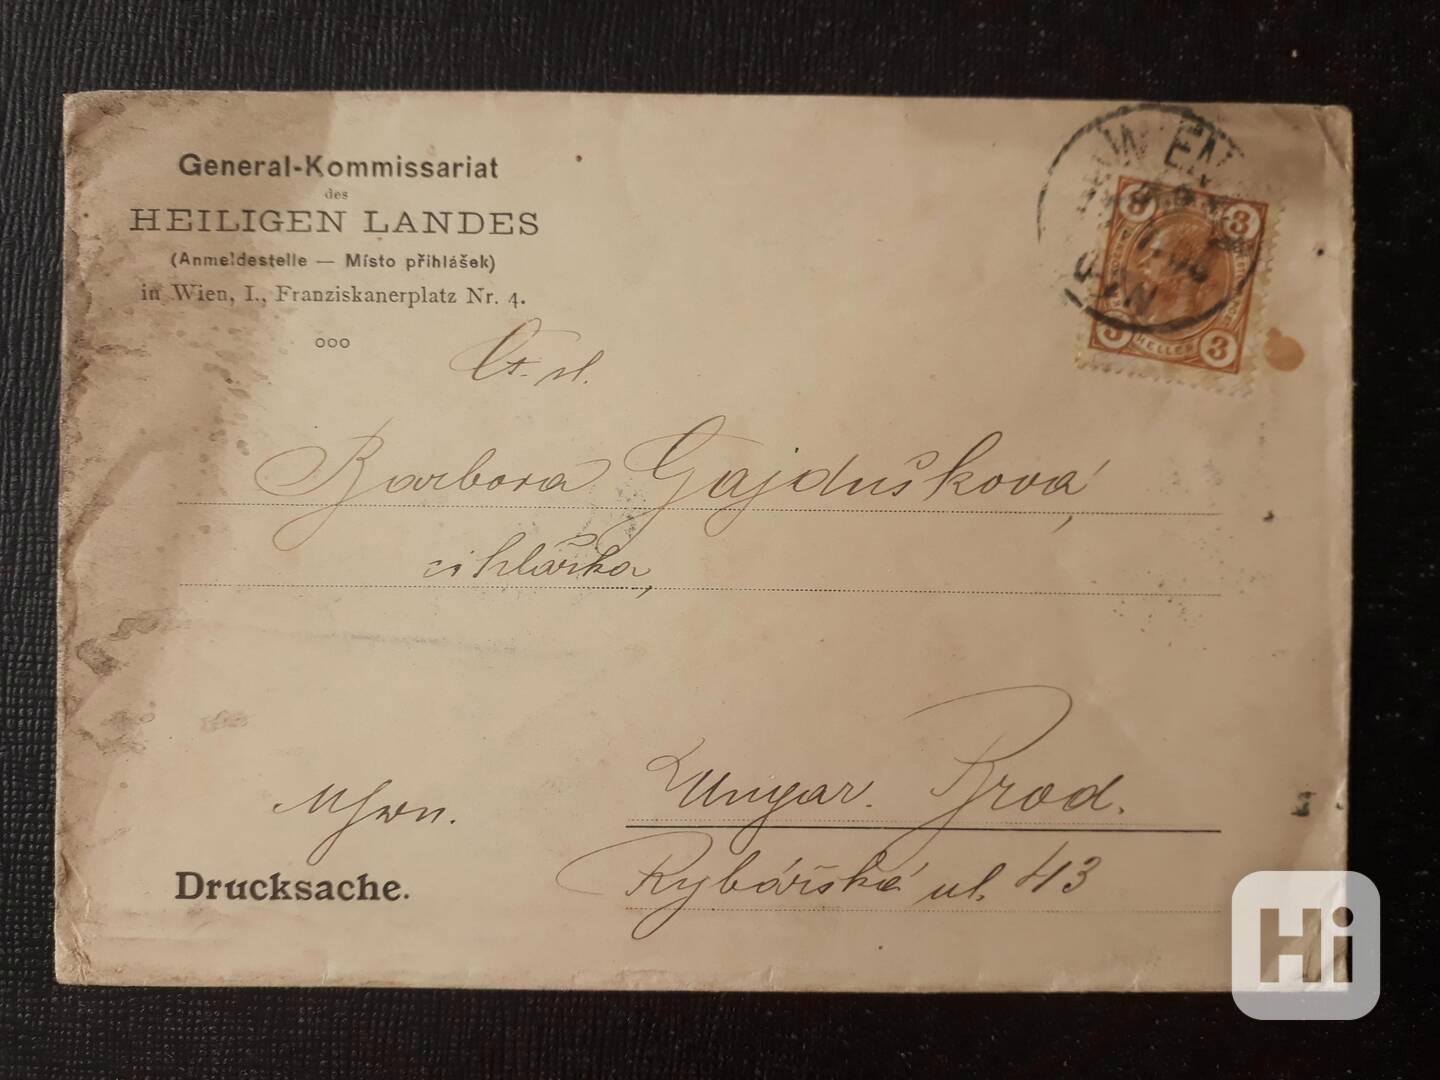 General-Kommissariat
des
HEILIGEN LANDES
(Anmeldestelle — Místo přihlášek)
in Wien, I., Franziskanerplatz Nr. 4.
ooo
Ct. sl.
Barbora Gajdušková,
cihlářka,
Ungar. Brod.
Mähren.
Drucksache.
Rybářská ul. 43
WIEN
WIEN
3 3
3 3
HELLER
Hi